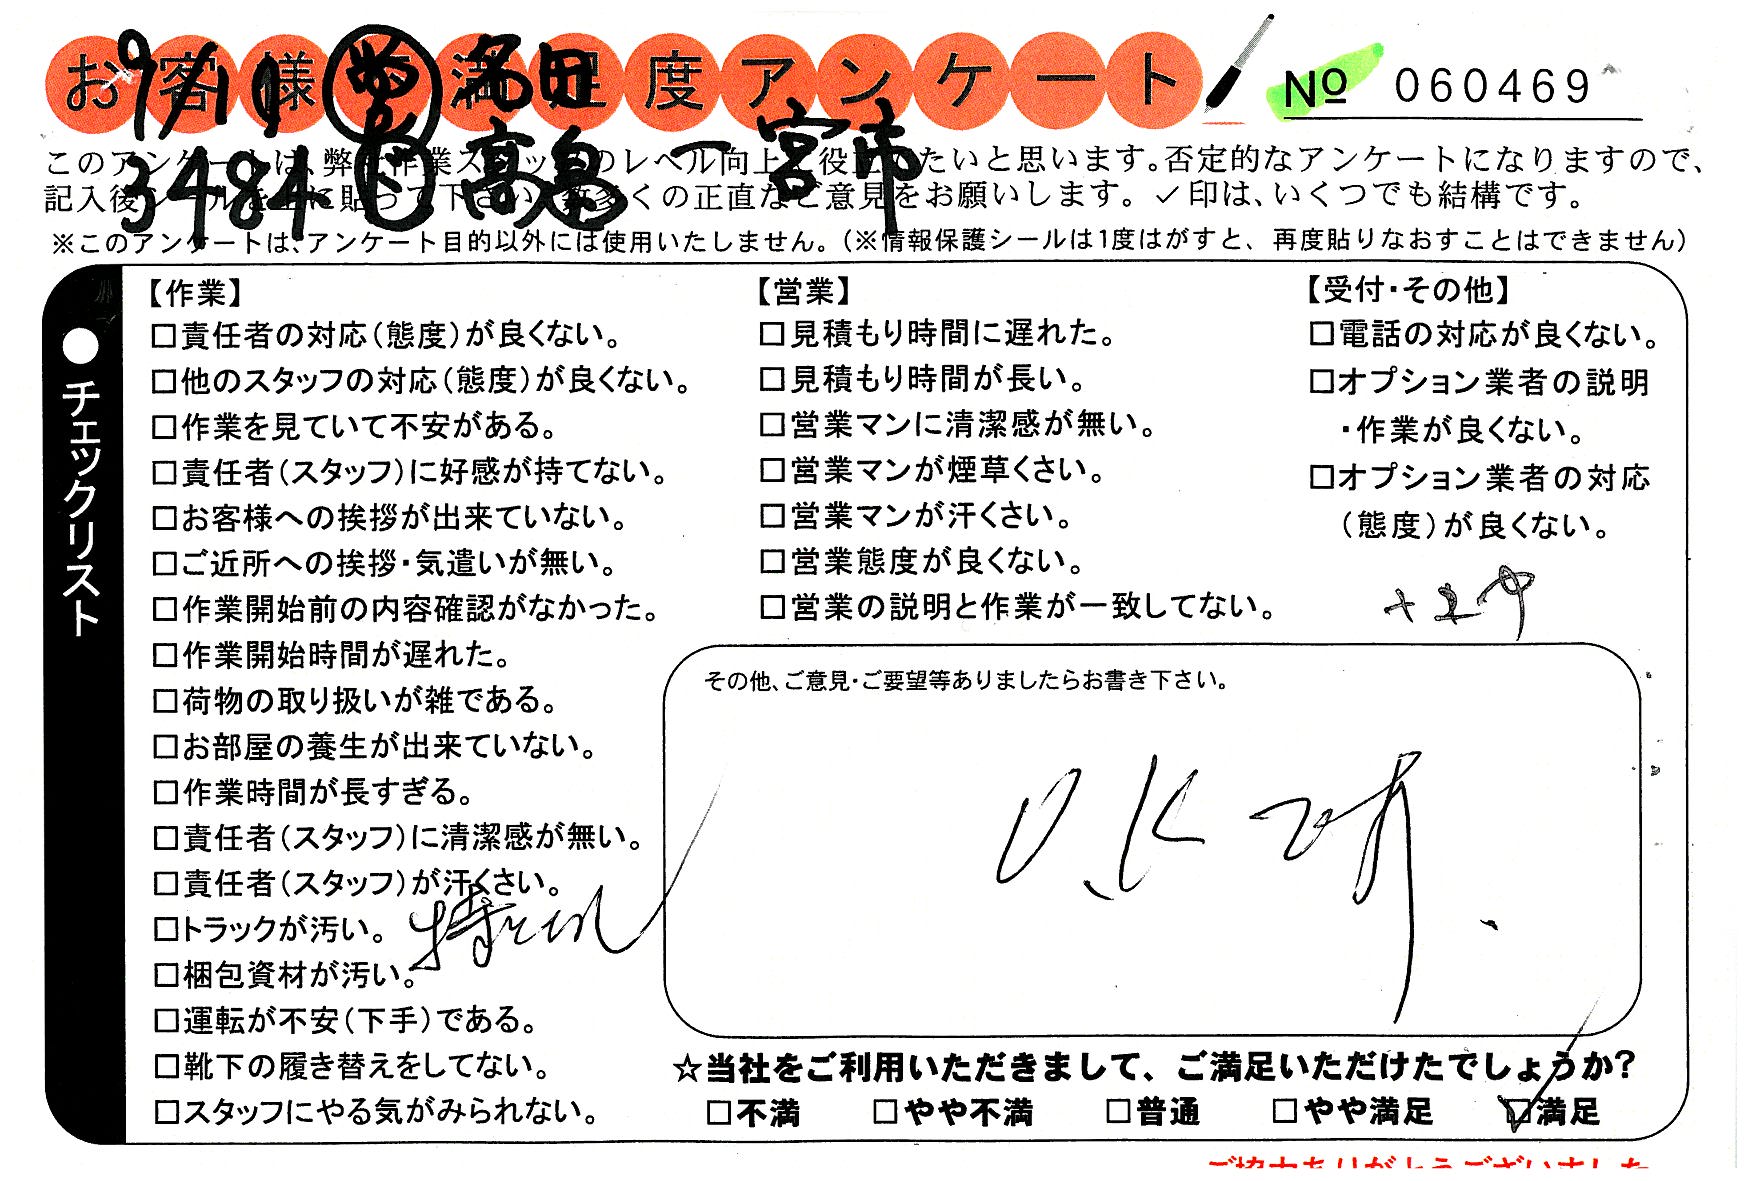 お客様満足度アンケート
№ 060469
9/11 営 名田
3484 高島 一宮市
このアンケートは、弊社作業スタッフのレベル向上に役立てたいと思います。否定的なアンケートになりますので、
記入後シールを上に貼って下さい。数多くの正直なご意見をお願いします。✓印は、いくつでも結構です。
※このアンケートは、アンケート目的以外には使用いたしません。（※情報保護シールは1度はがすと、再度貼りなおすことはできません）
●チェックリスト
【作業】
□責任者の対応（態度）が良くない。
□他のスタッフの対応（態度）が良くない。
□作業を見ていて不安がある。
□責任者（スタッフ）に好感が持てない。
□お客様への挨拶が出来ていない。
□ご近所への挨拶・気遣いが無い。
□作業開始前の内容確認がなかった。
□作業開始時間が遅れた。
□荷物の取り扱いが雑である。
□お部屋の養生が出来ていない。
□作業時間が長すぎる。
□責任者（スタッフ）に清潔感が無い。
□責任者（スタッフ）が汗くさい。
□トラックが汚い。
□梱包資材が汚い。
□運転が不安（下手）である。
□靴下の履き替えをしてない。
□スタッフにやる気がみられない。
特になし
【営業】
□見積もり時間に遅れた。
□見積もり時間が長い。
□営業マンに清潔感が無い。
□営業マンが煙草くさい。
□営業マンが汗くさい。
□営業態度が良くない。
□営業の説明と作業が一致してない。
【受付・その他】
□電話の対応が良くない。
□オプション業者の説明
・作業が良くない。
□オプション業者の対応
（態度）が良くない。
その他、ご意見・ご要望等ありましたらお書き下さい。
O.Kです.
☆当社をご利用いただきまして、ご満足いただけたでしょうか?
□不満 □やや不満 □普通 □やや満足 ☑満足
ご協力ありがとうございました